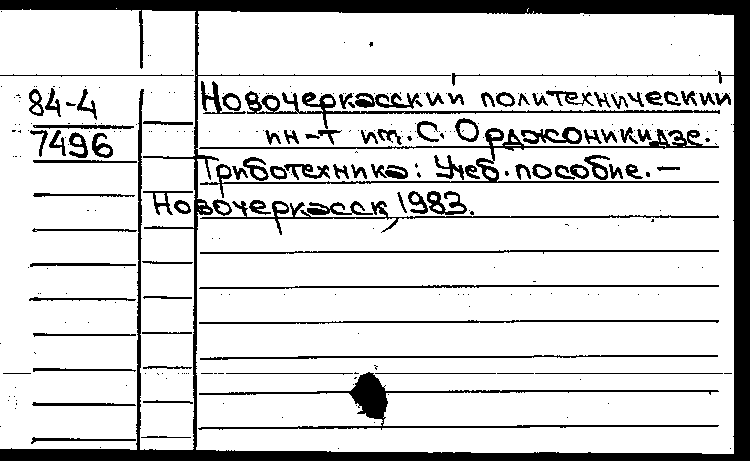 84-4
7496
Новочеркасский политехнический
ин-т им. С. Орджоникидзе.
Триботехника: Учеб. пособие. —
Новочеркасск, 1983.